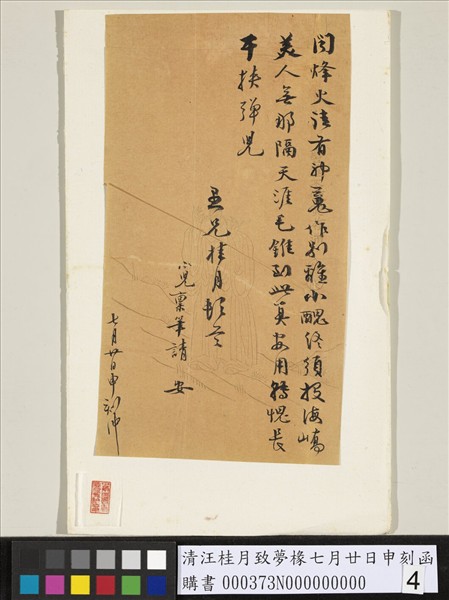 閩烽火淒有神鬼作別離小醜終須投海嶠
美人無那隔天涯毛錐到此真安用轉愧長
干挾彈兒
五兄桂月頓首
兒稟筆請安
七月廿日申刻沖
清汪桂月致夢椽七月廿日申刻函
購書 000373N000000000
4